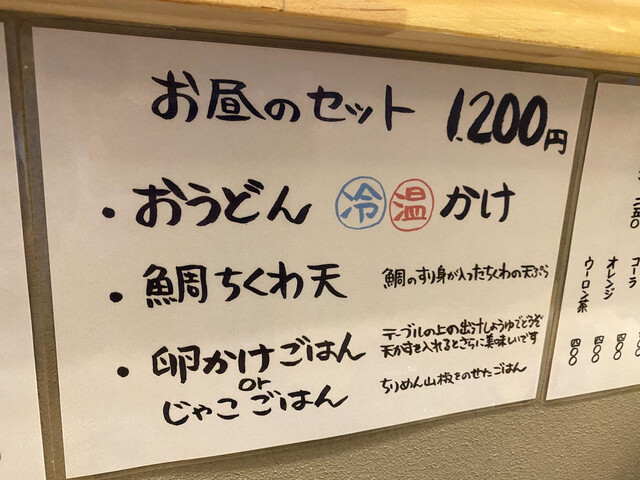 お昼のセット 1.200円
・おうどん 冷 温 かけ
・鯛ちくわ天 鯛のすり身が入ったちくわの天ぷら
・卵かけごはん テーブルの上の出汁しょうゆでどうぞ
天かすを入れるとさらに美味いです
or
じゃこごはん ちりめん山椒をのせたごはん
コーラ 四〇〇
オレンジ 四〇〇
ウーロン茶 四〇〇